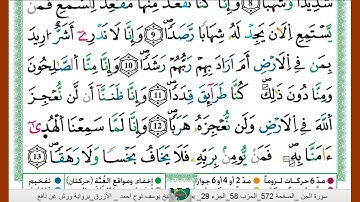 شَدِيداٗ وَشُهُباٗ 8 وَإِنَّا كُنَّا نَقْعُدُ مِنْهَا مَقَٰعِدَ لِلسَّمْعِ فَمَنْ
يَّسْتَمِعِ اِ۬لَانَ يَجِدْ لَهُۥ شِهَاباٗ رَّصَداٗ 9 وَإِنَّا لَا نَدْرِےٓ أَشَرٌّ ا۟رِيدَ
بِمَن فِے اِ۬لَارْضِ أَمَ اَرَادَ بِهِمْ رَبُّهُمْ رَشَداٗ 10 وَإِنَّا مِنَّا اَ۬لصَّٰلِحُونَ
وَمِنَّا دُونَ ذَٰلِكَ كُنَّا طَرَآئِقَ قِدَداٗ 11 وَإِنَّا ظَنَنَّآ أَن لَّن نُّعْجِزَ
اَ۬للَّهَ فِے اِ۬لَارْضِ وَلَن نُّعْجِزَهُۥ هَرَباٗ 12 وَإِنَّا لَمَّا سَمِعْنَا اَ۬لْهُد۪ىٰٓ
ءَامَنَّا بِهِۦ فَمَنْ يُّومِنۢ بِرَبِّهِۦ فَلَا يَخَافُ بَخْساٗ وَلَا رَهَقاٗ 13
مدّ 6 حركات لزوماً مدّ 2 أو 4 أو 6 جوازاً إخفاء ومواقع الغُنَّة (حركتان) تفخيم
سورة الجن _ الصفحة 572_الحزب 58_الجزء 29 _ الشيخ يوسف نوح أحمد _ الأزرق_رواية ورش عن نافع